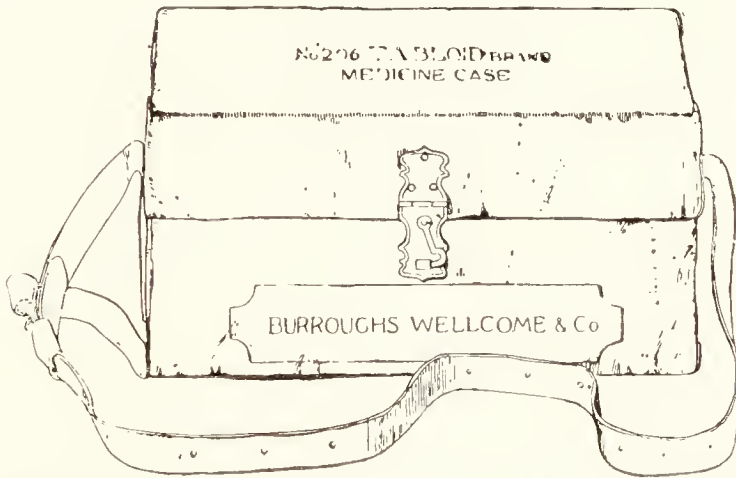 No 206 TABLOID BRAND
MEDICINE CASE
BURROUGHS WELLCOME & Co